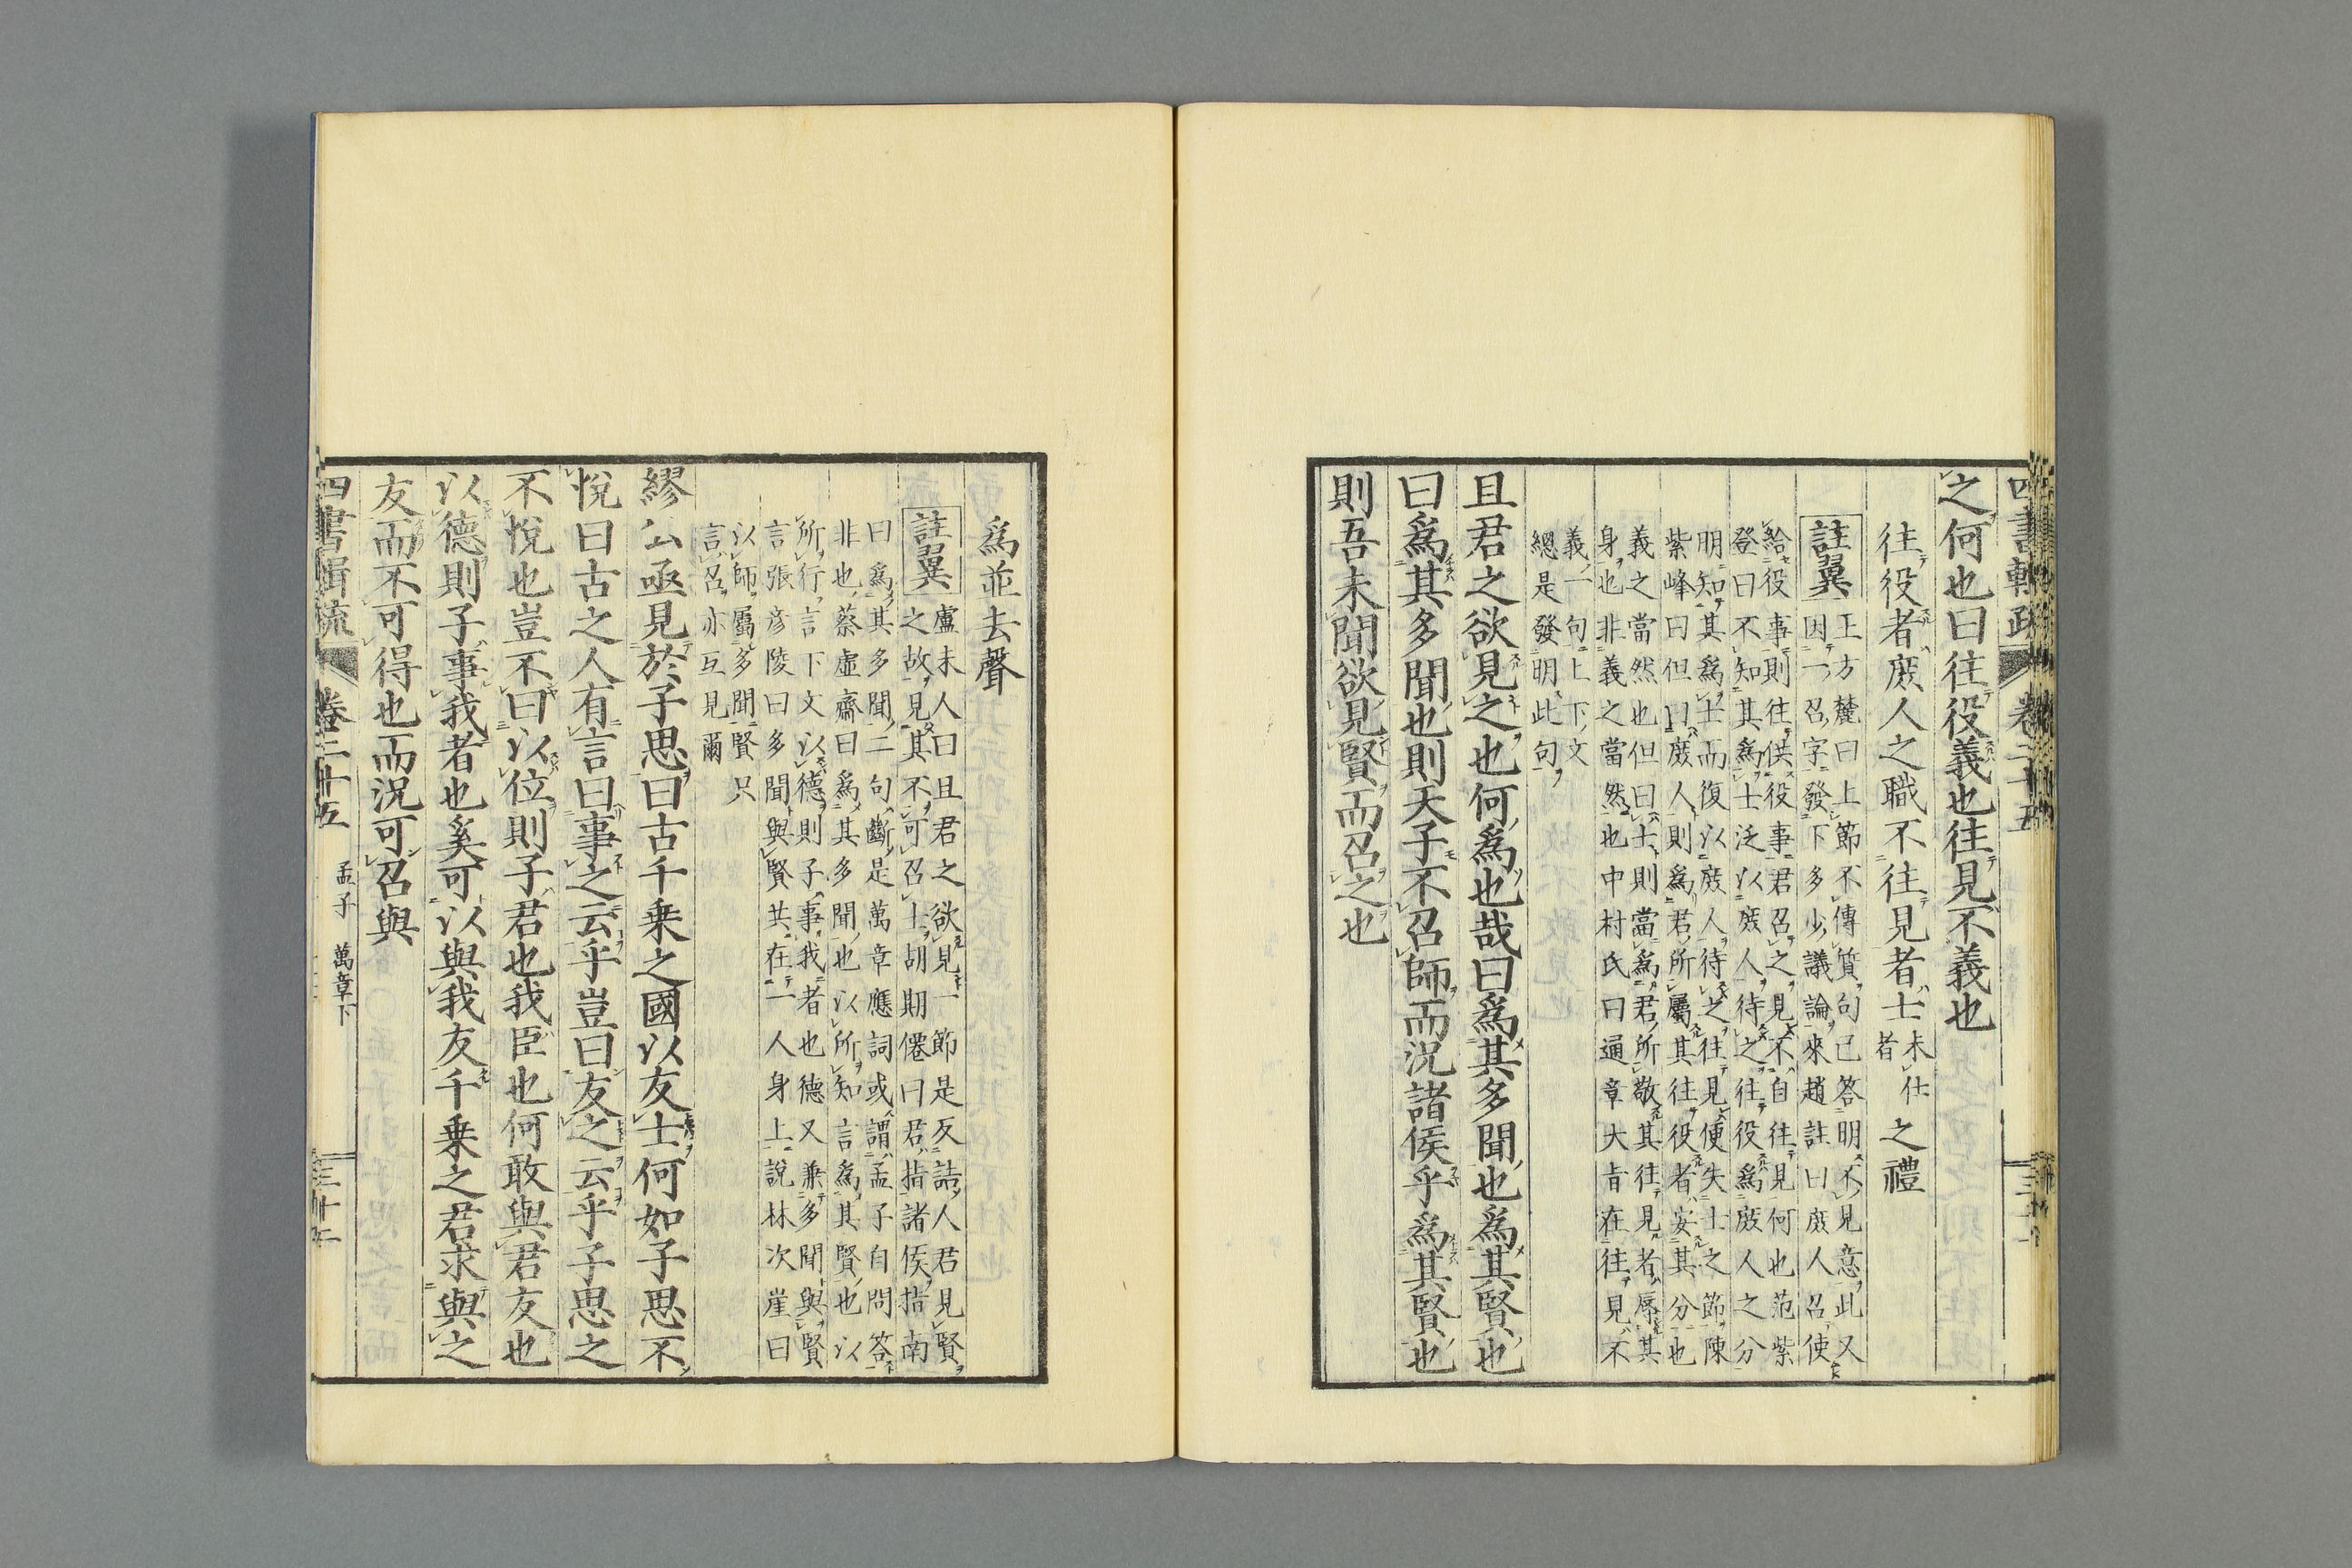 之何也曰往役義也往見不義也
往役者庶人之職不往見者士未仕者之禮
註翼王方麓曰上節不傳質句已答明不見意此又
因一召字發下多少議論來趙註曰庶人召使
給役事則往供役事君召之見不自往見何也范紫
登曰不知其爲士泛以庶人待之往役爲庶人之分
明知其爲士而復以庶人待之往見便失士之節陳
紫峰曰但曰庶人則爲君所屬其往役者安其分也
義之當然也但曰士則當爲君所敬其往見者辱其
身也非義之當然也中村氏曰通章大旨在往見不
義一句上下文
總是發明此句
且君之欲見之也何爲也哉曰爲其多聞也爲其賢也
曰爲其多聞也則天子不召師而況諸侯乎爲其賢也
則吾未聞欲見賢而召之也
爲並去聲
註翼盧未人曰且君之欲見一節是反詰人君見賢
之故見其不可召士胡期僊曰君指諸侯指南
曰爲其多聞二句斷是萬章應詞或謂孟子自問答
非也蔡虛齋曰爲其多聞也以所知言爲其賢也以
所行言下文以德則子事我者也德又兼多聞與賢
言張彥陵曰多聞與賢共在一人身上說林次崖曰
以師屬多聞賢只
言召亦互見爾
繆公亟見於子思曰古千乘之國以友士何如子思不
悅曰古之人有言曰事之云乎豈曰友之云乎子思之
不悅也豈不曰以位則子君也我臣也何敢與君友也
以德則子事我者也奚可以與我友千乘之君求與之
友而不可得也而況可召與
四書輯疏 卷二十五 孟子 萬章下